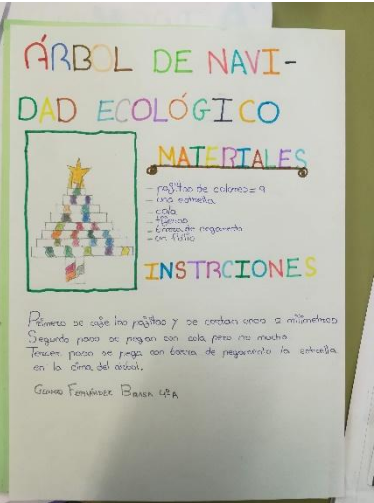 ÁRBOL DE NAVI-
DAD ECOLÓGICO
MATERIALES
- pajitas de colores = 9
- una estrella
- cola
- tijeras
- barra de pegamento
- un
INSTRCIONES
Primero se coje las pajitas y se cortan unos 2 milímetros
Segundo paso se pegan con cola pero no mucho
Tercer paso se pega con barra de pegamento la estrella
en la cima del árbol.
FERNÁNDEZ 4ºA